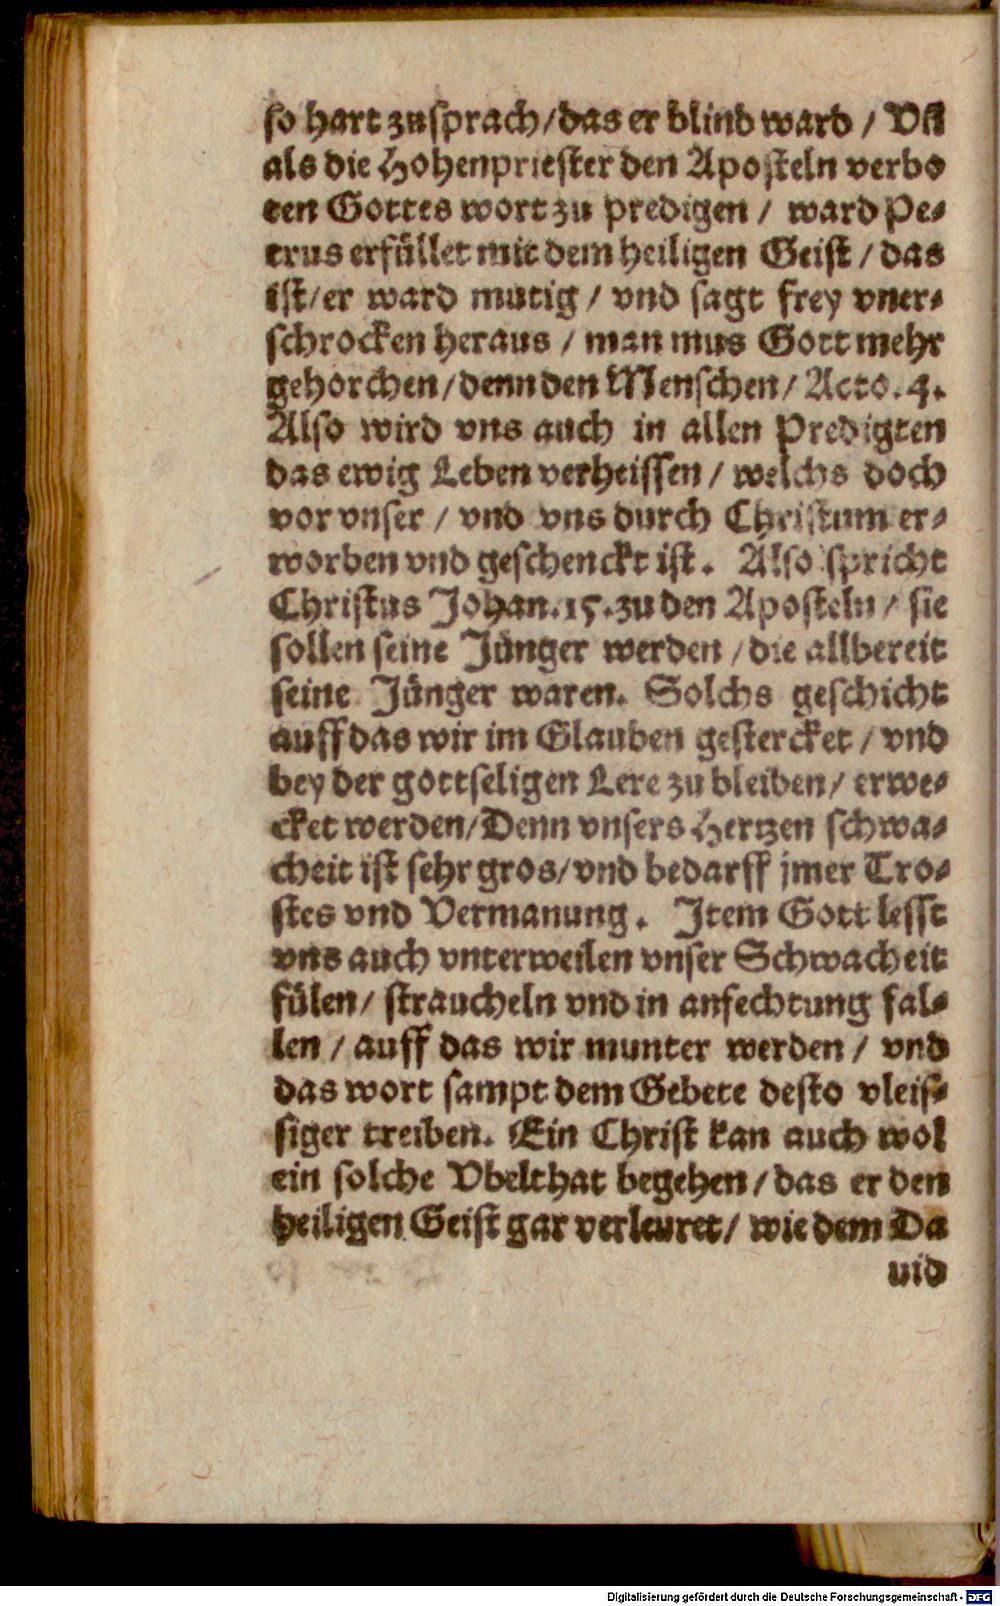 so hart zusprach/das er blind ward / Vñ
als die Hohenpriester den Aposteln verbo
ten Gottes wort zu predigen / ward Pe-
trus erfüllet mit dem heiligen Geist / das
ist/er ward mutig / vnd sagt frey vner-
schrocken heraus / man mus Gott mehr
gehorchen/denn den Menschen/ Acto. 4.
Also wird vns auch in allen Predigten
das ewig Leben verheissen / welchs doch
vor vnser / vnd vns durch Christum er-
worben vnd geschenckt ist. Also spricht
Christus Johan. 15. zu den Aposteln / sie
sollen seine Jünger werden / die allbereit
seine Jünger waren. Solchs geschicht
auff das wir im Glauben gestercket / vnd
bey der gottseligen Lere zu bleiben/ erwe-
cket werden/Denn vnsers Hertzen schwa-
cheit ist sehr gros/vnd bedarff jmer Tro-
stes vnd Vermanung. Item Gott lesst
vns auch vnterweilen vnser Schwacheit
fülen/ straucheln vnd in anfechtung fal-
len / auff das wir munter werden / vnd
das wort sampt dem Gebete desto vleis-
siger treiben. Ein Christ kan auch wol
ein solche Vbelthat begehen/das er den
heiligen Geist gar verleuret/ wie dem Da
uid
Digitalisierung gefördert durch die Deutsche Forschungsgemeinschaft - DFG